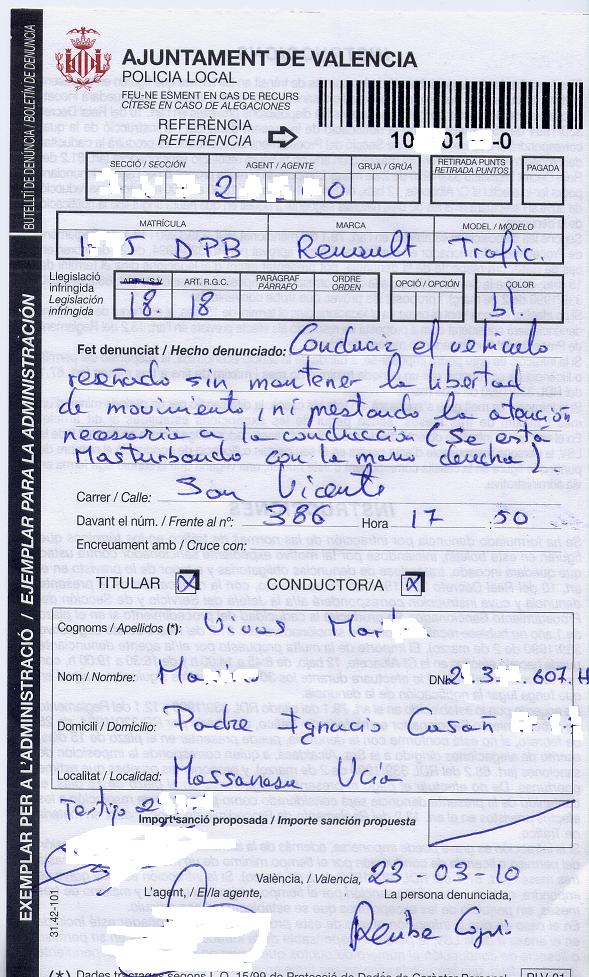 AJUNTAMENT DE VALENCIA
POLICIA LOCAL
FEU-NE ESMENT EN CAS DE RECURS
CÍTESE EN CASO DE ALEGACIONES
REFERÈNCIA
REFERENCIA
10 01 -0
SECCIÓ / SECCIÓN AGENT / AGENTE GRUA / GRÚA RETIRADA PUNTS PAGADA
RETIRADA PUNTOS
2 0
MATRÍCULA MARCA MODEL / MODELO
DPB Renault Trafic.
Legislació infringida
Legislación infringida
ART. L.S.V. ART. R.G.C. PARÀGRAF PÁRRAFO ORDRE ORDEN OPCIÓ / OPCIÓN COLOR
18. 18 bl.
Fet denunciat / Hecho denunciado: Conducir el vehículo
reseñado sin mantener la libertad
de movimiento, ni prestando la atención
necesaria a la conducción (Se está
Masturbando con la mano derecha).
Carrer / Calle: San Vicente
Davant el núm. / Frente al nº: 386 Hora 17 : 50
Encreuament amb / Cruce con:
TITULAR X CONDUCTOR/A X
Cognoms / Apellidos (*): Vivas Mar
Nom / Nombre: DNI 607.H
Domicili / Domicilio: Padre Ignacio Casañ
Localitat / Localidad: Massanasa Vcia
Testigo 2
Import sanció proposada / Importe sanción propuesta
València, / Valencia, 23-03-10
L'agent, / El/la agente, La persona denunciada,
31.42-101
BUTLLETÍ DE DENÚNCIA / BOLETÍN DE DENUNCIA
EXEMPLAR PER A L'ADMINISTRACIÓ / EJEMPLAR PARA LA ADMINISTRACIÓN